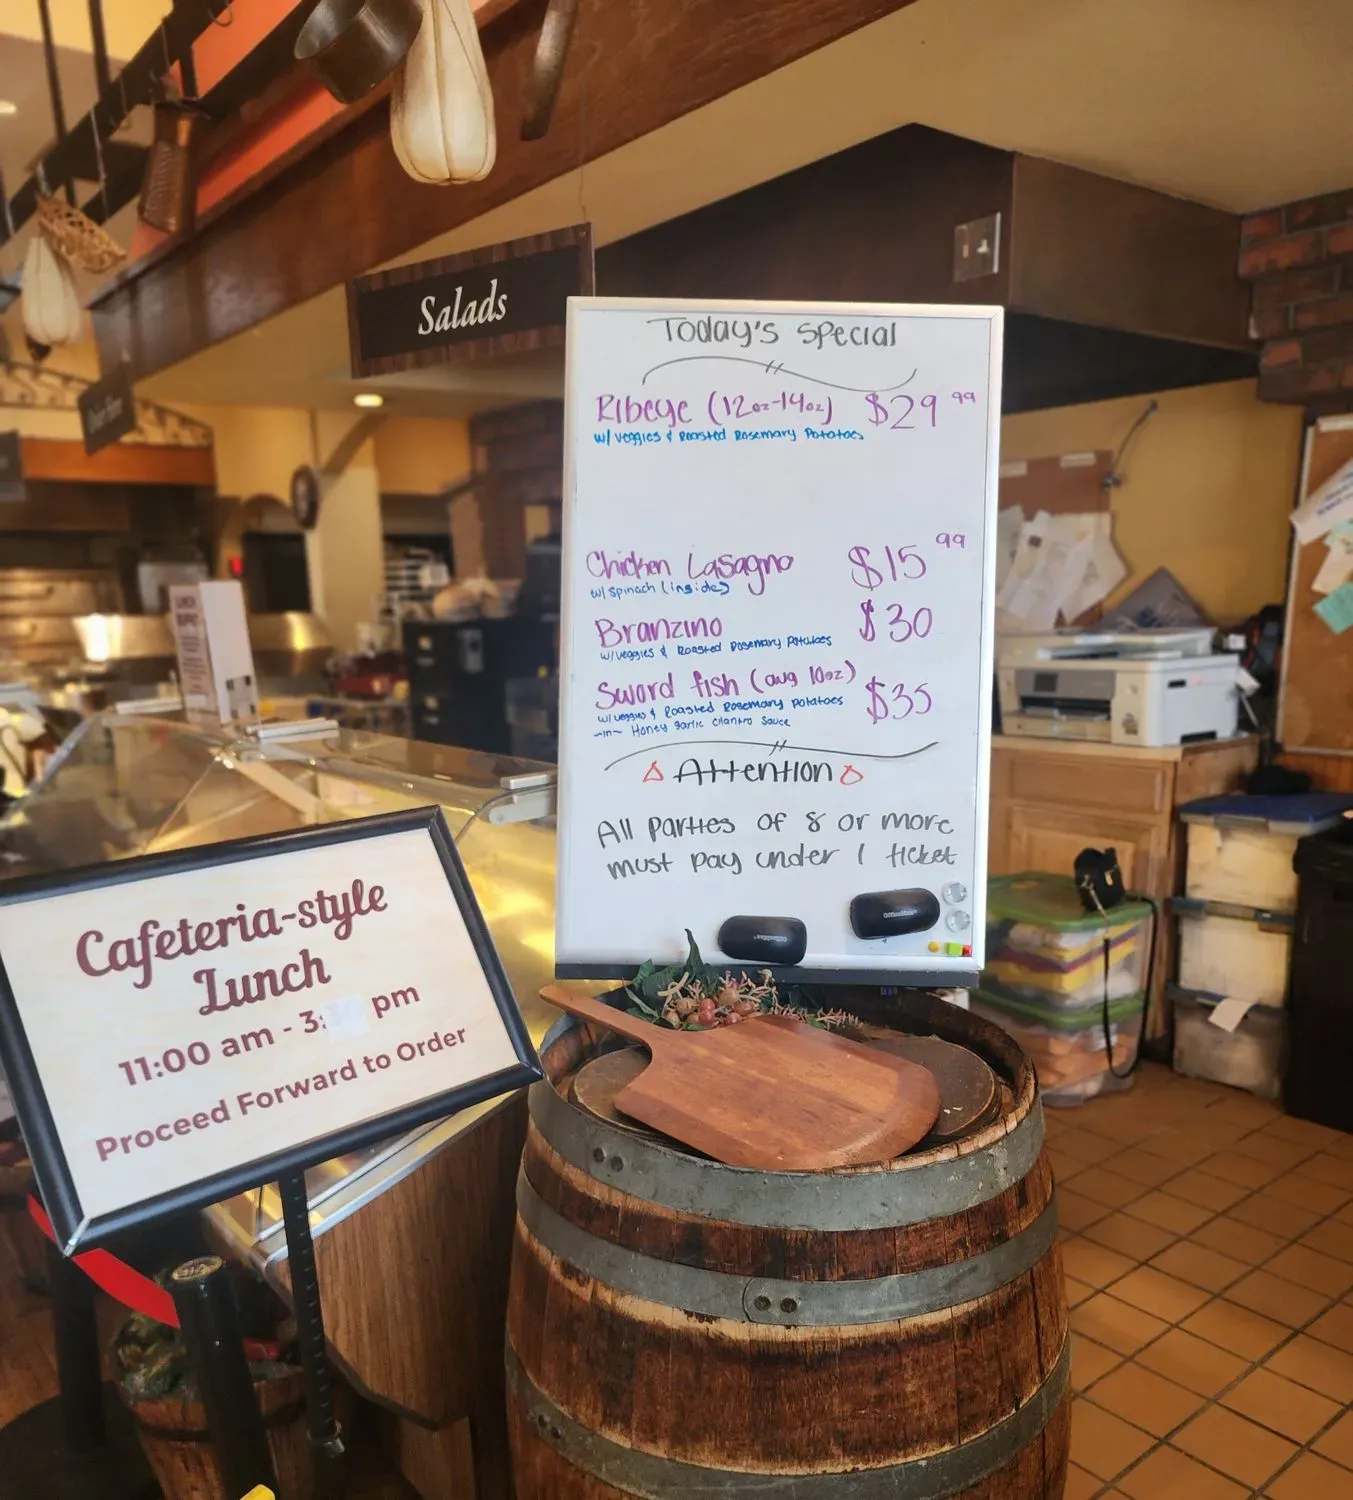 Salads
Today's Special
Ribeye (12oz-14oz) $29 99
w/ veggies & Roasted Rosemary Potatoes
Chicken Lasagna $15 99
w/ spinach (inside)
Branzino $30
w/ veggies & Roasted Rosemary Potatoes
Sword fish (avg 10oz) $35
w/ veggies & Roasted Rosemary Potatoes
~in~ Honey garlic cilantro sauce
Attention
All parties of 8 or more
must pay under 1 ticket
OfficeMax
OfficeMax
Cafeteria-style
Lunch
11:00 am - 3: pm
Proceed Forward to Order